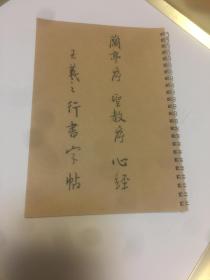 蘭亭序 聖教序 心經
王羲之行書字帖